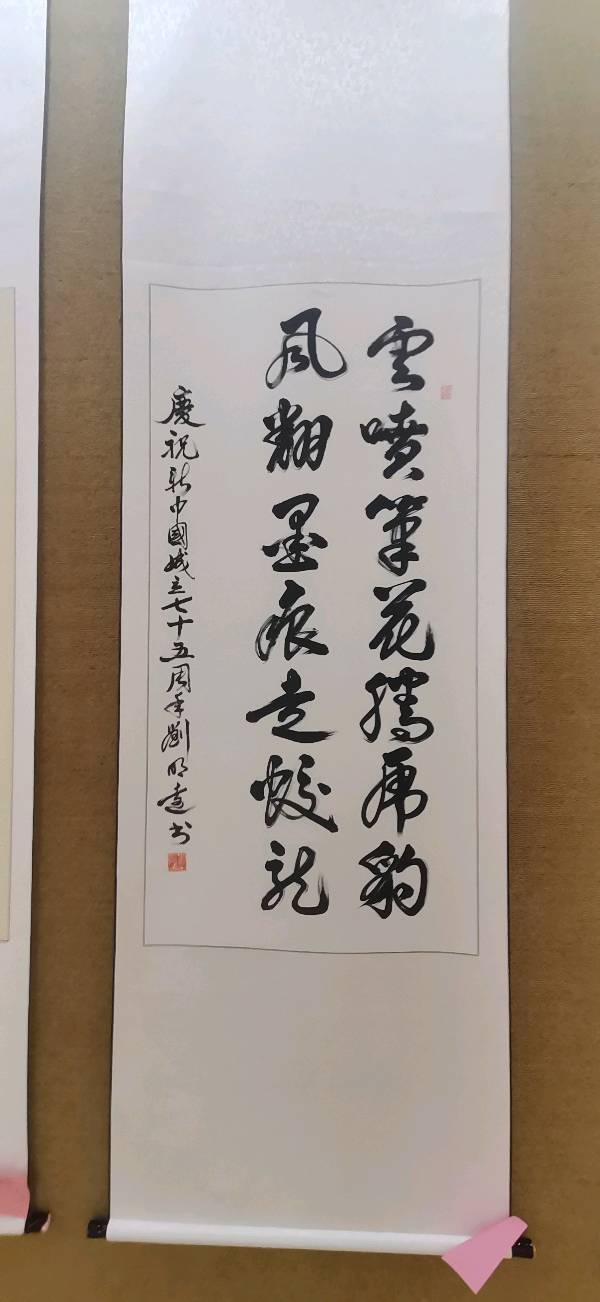 雲噴筆花騰虎豹
風翻墨痕走蛟龍
慶祝新中國成立七十五周年劉明遠书